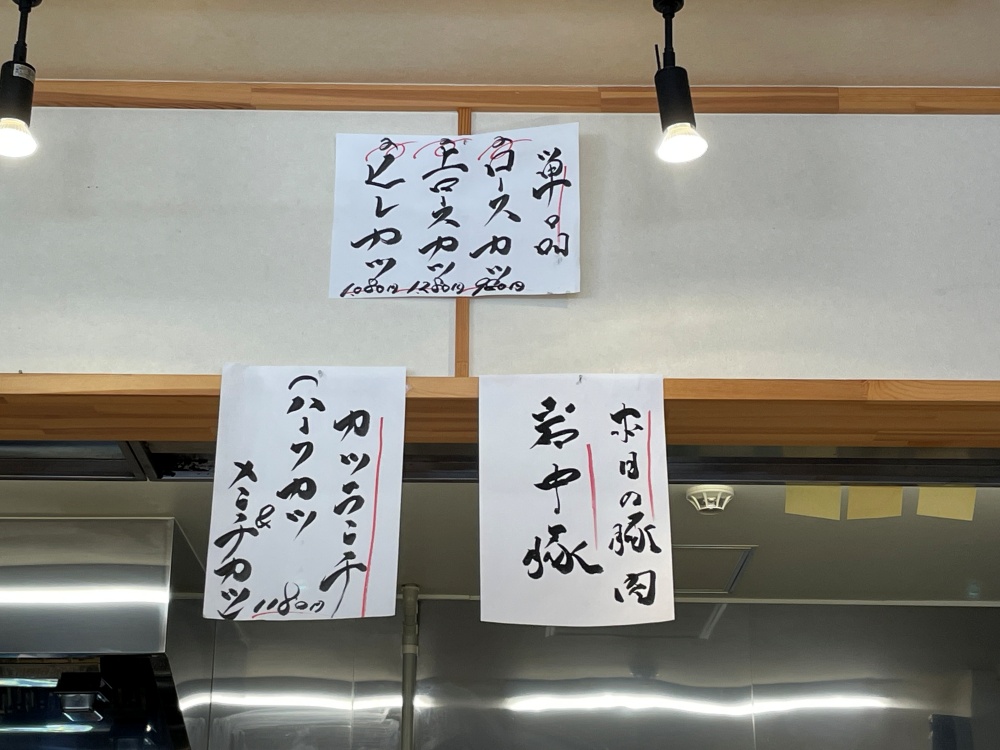 単品
ロースカツ
980円
上ロースカツ
1,280円
ヒレカツ
1,080円
本日の豚肉
彩の中豚
カツランチ
(ハーフカツ
&
メンチカツ)
1180円